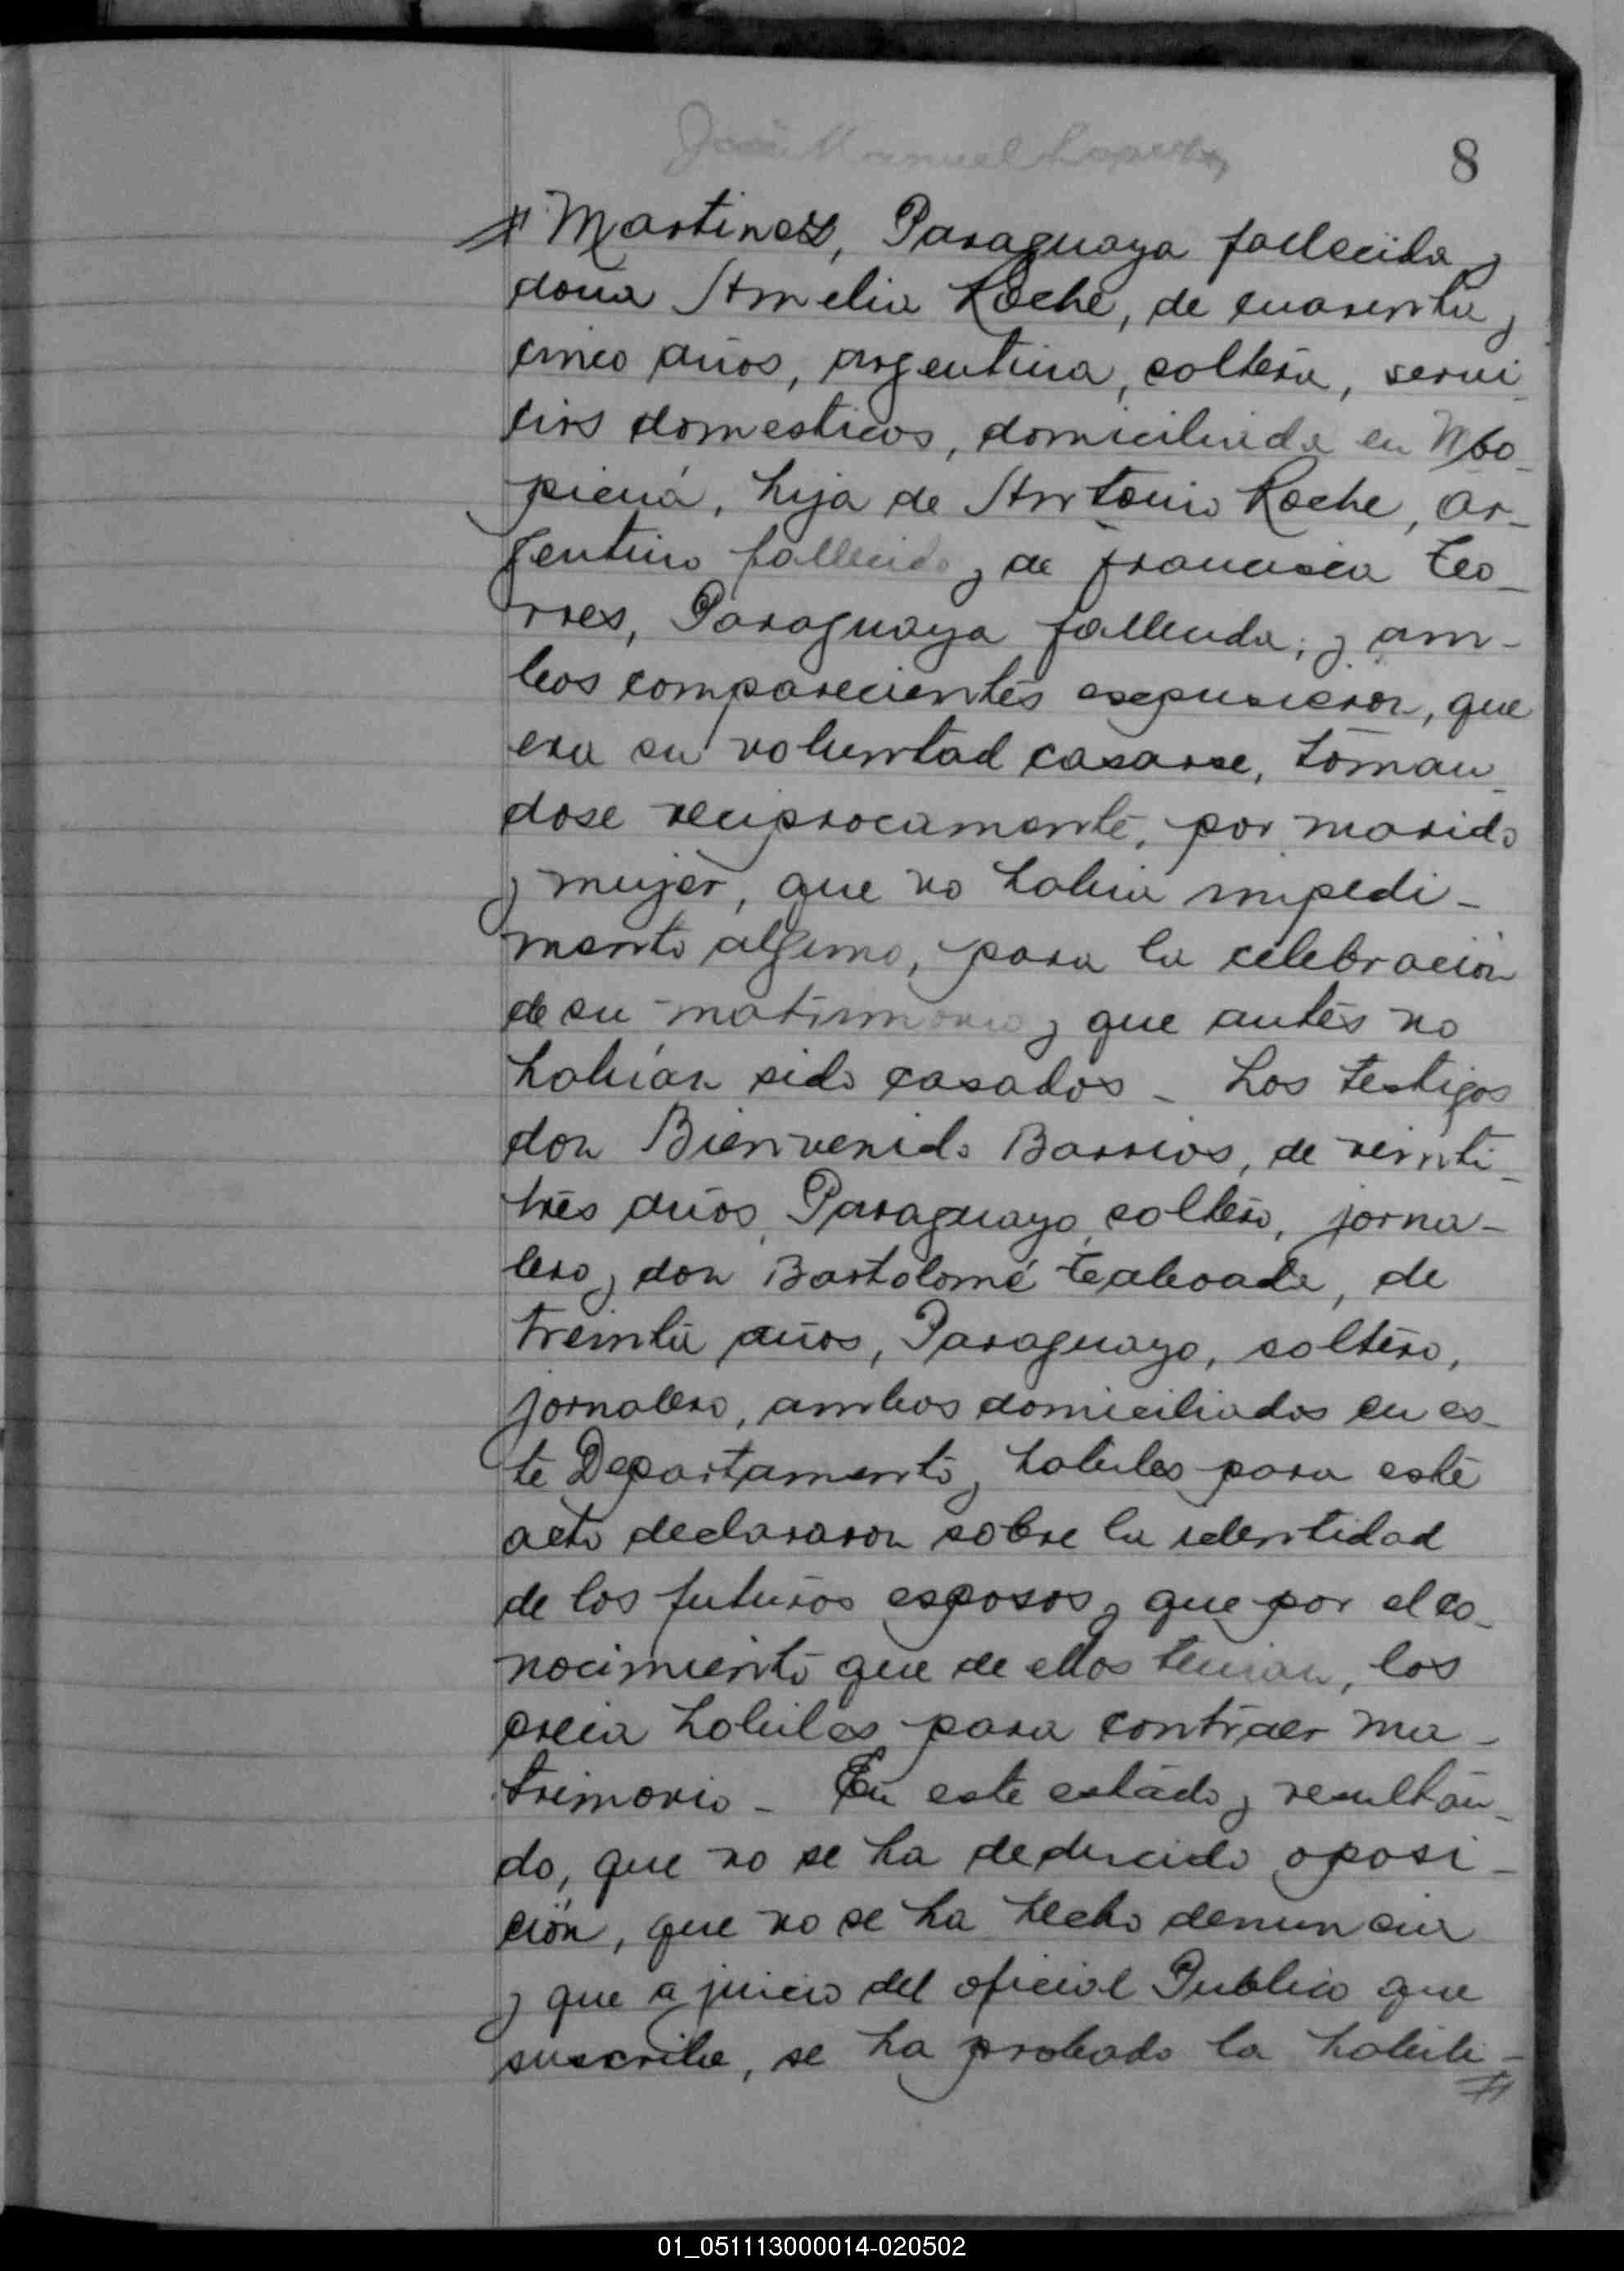 José Manuel Lopez
8
# Martinez, Paraguaya fallecida y
doña Amelia Roche, de cuarenta y
cinco años, argentina, soltera, servi-
cios domesticos, domiciliada en Mbo-
picuá, hija de Antonio Roche, ar-
gentino fallecido y de Francisca To-
rres, Paraguaya fallecida; y am-
bos comparecientes expusieron, que
era su voluntad casarse, toman-
dose reciprocamente, por marido
y mujer, que no habia impedi-
mento alguno, para la celebración
de su matrimonio y que antes no
habían sido casados - Los testigos
don Bienvenido Barrios, de veinti-
tres años, Paraguayo, soltero, jorna-
lero y don Bartolomé Taboada, de
treinta años, Paraguayo, soltero,
jornalero, ambos domiciliados en es-
te Departamento y habiles para este
acto declararon sobre la identidad
de los futuros esposos y que por el co-
nocimiento que de ellos tenian, los
creia habiles para contraer ma-
trimonio - En este estado y resultan-
do, que no se ha deducido oposi-
ción, que no se ha hecho denuncia
y que a juicio del oficial Publico que
suscribe, se ha probado la habili-
#
01_051113000014-020502